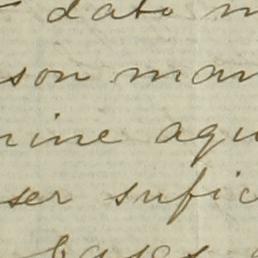 dato m
son man
nine aqu
ser sufic
bases